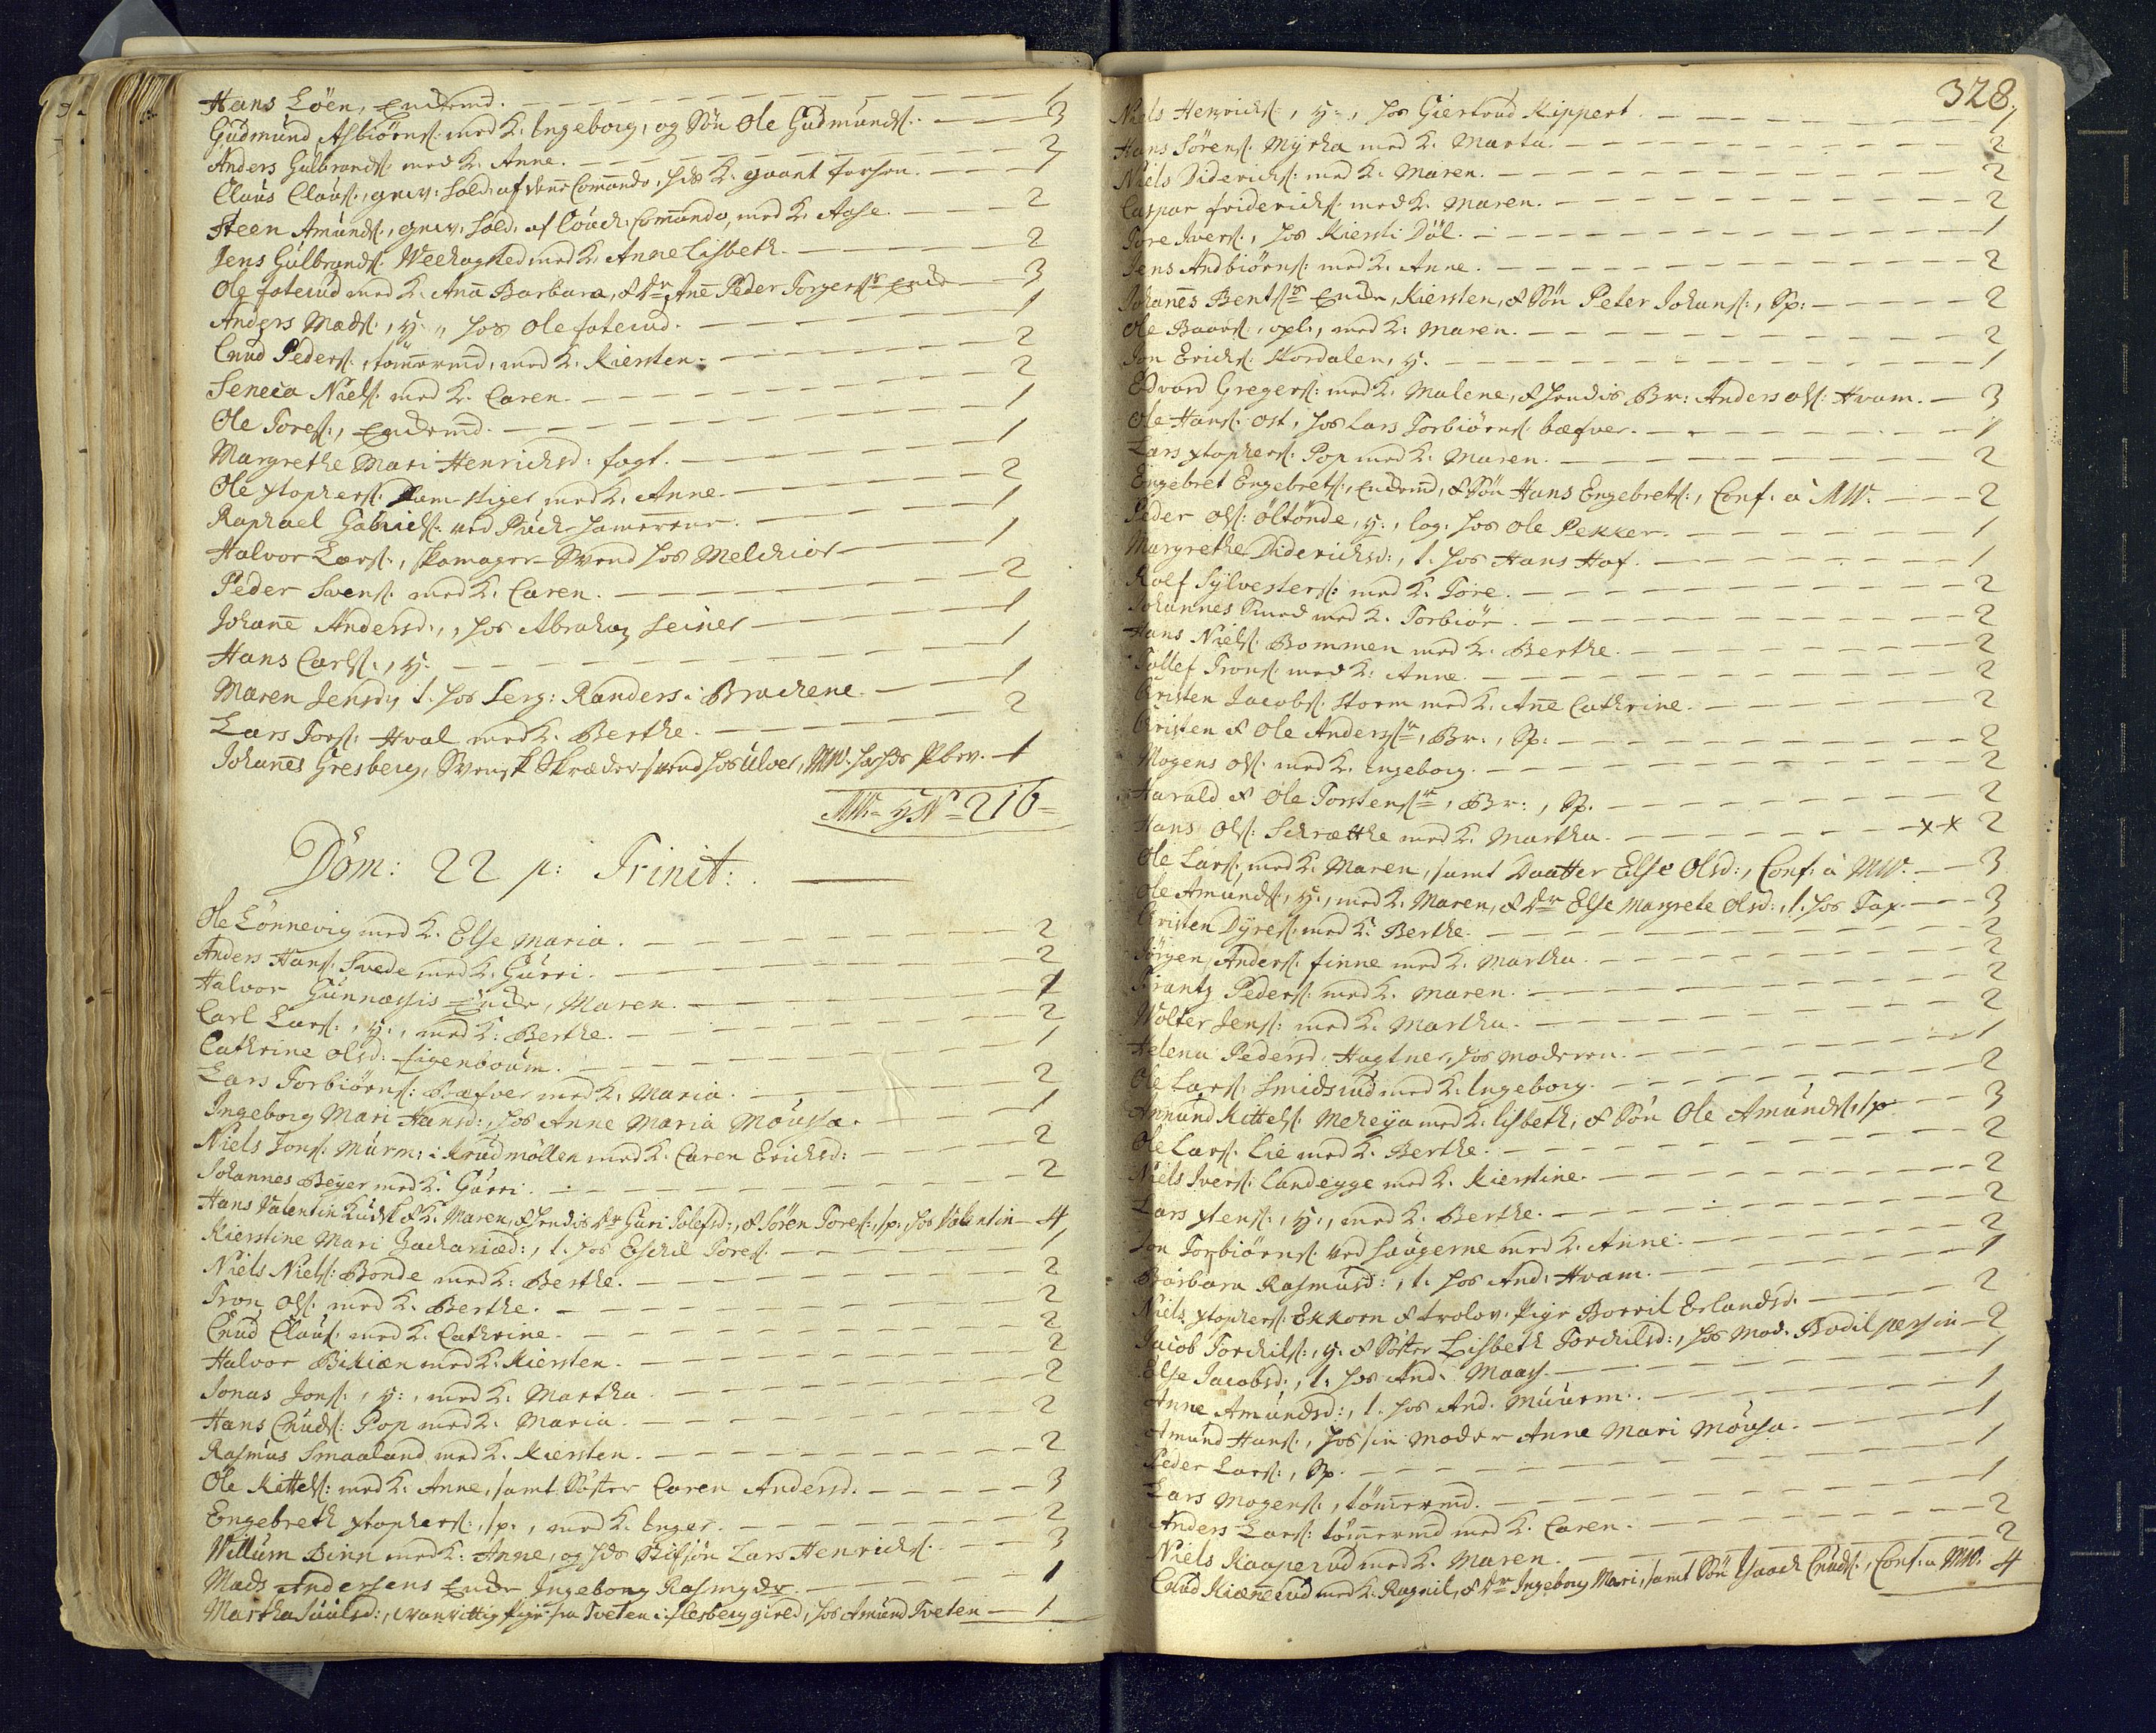 Hans Löen, Enckemd. 1
Gudmund Asbiörns: med K. Ingeborg, og Sön Ole Gudmunds: 3
Anders Gulbrands: med K. Anne. 2
Claus Claus:, gev: Sold: af Comando, K. 1
Steen Amunds:, gev: Sold: af Couch: Comando, med K. Aase. 2
Jens Gulbrands: med K. Anne Lisbeth. 2
Ole foterud med K. Ana Barbara, & Dr Ane Peder Torgers: Enke 3
Anders Mads:, y:, hos Ole foterud. 1
Cnud Peders:, tömermd, med K. Kiersten. 2
Seneca Niels: med K. Caren. 2
Ole Tores:, Enckemd. 1
Margrethe Mari Henrichsd: fogt. 1
Ole xtophers: stiger med K. Anne. 2
Raphael Gabriels: ved Puch-hamerene. 1
Halvor Lars:, skomager-Svend hos Melchior 1
Peder Svens: med K. Caren. 2
Johane Andersd:, hos Abraham Seiner 1
Hans Carls:, y. 1
Maren Jensdr, t. hos Serg: Randers i Brachene. 1
Lars Tors: Hval med K. Berthe. 2
Johanes Gresberg, Svensk Skrædersvend hos Ulver, MW. 1
216
Dom: 22 p: Trinit:
Ole Lönnevig med K. Else Maria. 2
Anders Hans: Svede med K. Gurri. 2
Halvor Gunnessis Encke, Maren. 1
Carl Lars:, y:, med K. Berthe. 2
Cathrine Olsd: Figenboum. 1
Lars Torbiörns: Bæfver med K. Maria. 2
Ingeborg Mari Hansd:, hos Anne Maria Moussa. 1
Niels Jons: Murm: i Krudmöllen med K. Caren Erichsd: 2
Johannes Beyer med K. Gurri. 2
Hans Valentin Kudsk & K. Maren, & hendis Dr Guri Tolefsd:, & Sören Tores:, sp. hos Valentin 4
Kierstine Mari Zachariæd:, t. hos Eschil Tores: 1
Niels Niels: Bonde med K. Berthe. 2
Tron Ols: med K. Berthe. 2
Cnud Claus: med K. Cathrine. 2
Halvor Bikiæn med K. Kiersten. 2
Jonas Jons:, y:, med K. Martha. 2
Hans Cnuds: Pop med K. Maria. 2
Rasmus Smaaland med K. Kiersten. 2
Ole Kittels: med K. Anne, samt Söster Caren Andersd. 3
Engebreth xtophers:, sp., med K. Inger. 2
Willum Binn med K. Anne, og hds Stifsön Lars Henrichs: 3
Mads Andersens Encke Ingeborg Rasmusdr. 1
Martha Juulsd:, vanvittig Pige fra Tveten i Flesberg gield, hos Amund Tveten 1
328.
Niels Henrichs:, y:, hos Giertrud Kippert. 1
Hans Sörens: Myrha med K. Marta. 2
Niels Diderichs: med K. Maren. 2
Caspar friderichs: med K. Maren. 2
Tore Ivers:, hos Kiersti Döl. 1
Jens Andbiörns: med K. Anne. 2
Johanes Bents: Encke, Kiersten, & Sön Peter Johans:, Sp: 2
Ole Baars:, opl:, med K. Maren. 2
Jon Erichs: Skordalen, y. 1
Edvard Gregers: med K. Malene, & hendis Br: Anders Ols: Hvam. 3
Ole Hans: Ost, hos Lars Torbiörns: bæfver. 1
Lars xtophers: Pop med K. Maren. 2
Engebret Engebrets:, Enckemd, & Sön Hans Engebrets:, Conf: a MW. 2
Peder Ols: Öltönde, y:, log: hos Ole Pekker. 1
Margrethe Diderichsd:, t. hos Hans Hof. 1
Rolf Sylvesters: med K. Tore. 2
Johannes Smed med K. Torbiör. 2
Hans Niels: Bommen med K. Berthe. 2
Tollef Trons: med K. Anne. 2
Cristen Jacobs: Storm med K. Ane Cathrine. 2
Cristen & Ole Anders:, Br:, Sp: 2
Mogens Ols: med K. Ingeborg. 2
Harald & Ole Torstens:, Br:, Sp. 2
Hans Ols: Schrætthe med K. Martha. xx 2
Ole Lars: med K. Maren, samt Daatter Else Olsd:, Conf: a MW. 3
Ole Amunds:, y:, med K. Maren, & Dr Else Margrete Olsd:, t. hos Fax. 3
Cristen Dyres: med K. Berthe. 2
Jörgen Anders: finne med K. Martha. 2
Frantz Peders: med K. Maren. 2
Wolter Jens: med K. Martha. 2
Helena Pedersd: Hagtner, hos moderen. 1
Ole Lars: Smidsrud med K. Ingeborg. 2
Amund Kittels: Meheya med K. Lisbeth, & Sön Ole Amunds:, sp 3
Ole Lars: Lie med K. Berthe. 2
Niels Ivers: Landeyge med K. Kierstine. 2
Lars xtens:, y:, med K. Berthe. 2
Jon Torbiörns: ved Saugerne med K. Anne. 2
Barbara Rasmusd:, t. hos And: Hvam. 1
Niels xtophers: Ekkorn & trolov: Pige Borril Erlandsd. 2
Jacob Torchils:, y. & Söster Lisbeth Torchilsd:, hos Mod: Bodil 2
Else Jacobsd:, t. hos And: Maas. 1
Anne Amundsd:, t. hos And. Muurm. 1
Amund Hans:, hos sin Moder Anne Mari Mousa. 1
Peder Lars:, Sp. 1
Lars Mogens:, tömermd. 1
Anders Lars: tömermd med K. Caren. 2
Niels Kaaperud med K. Maren. 2
Cnud Kiænerud med K. Ragnil, & Dr Ingeborg Mari, samt Sön Isaach Cnuds:, Conf: a MW. 4